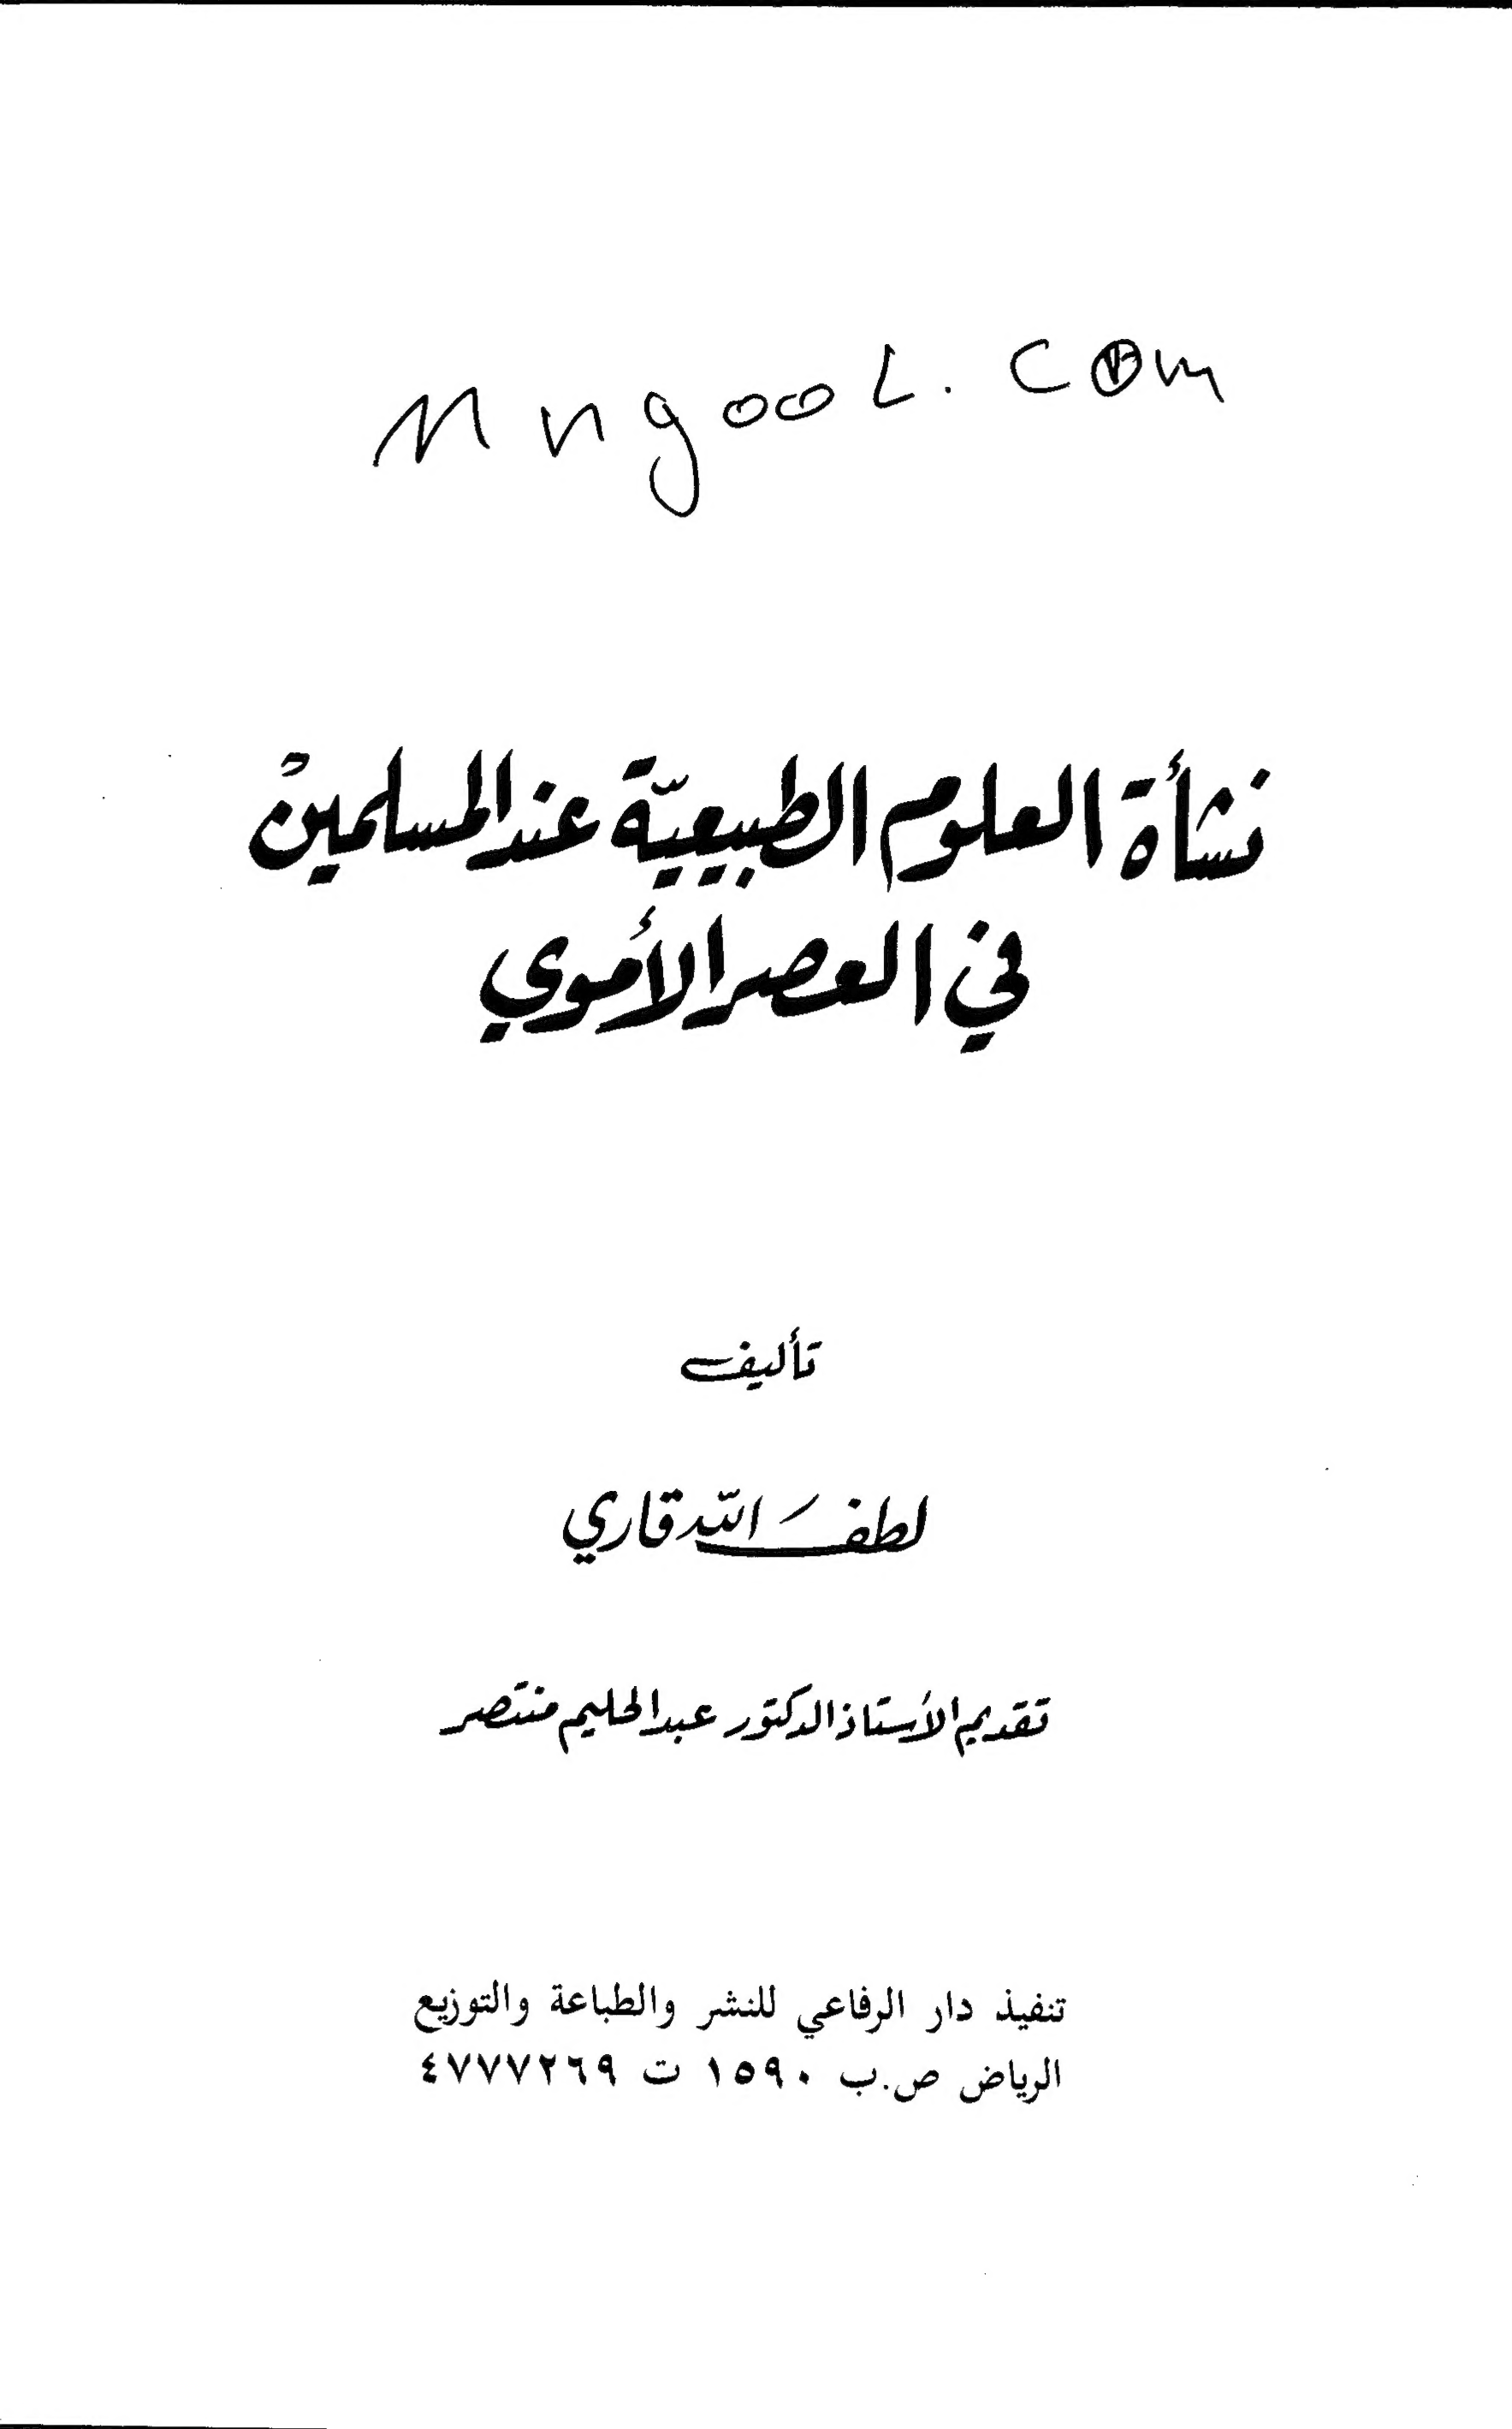 Mngool.com
نشأة العلوم الطبيعيّة عند المسلمين
في العصر الأموي
تأليف
لطف الله قاري
تقديم الأستاذ الدكتور عبد الحليم منتصر
تنفيذ دار الرفاعي للنشر والطباعة والتوزيع
الرياض ص.ب ١٥٩٠ ت ٤٧٧٧٢٦٩